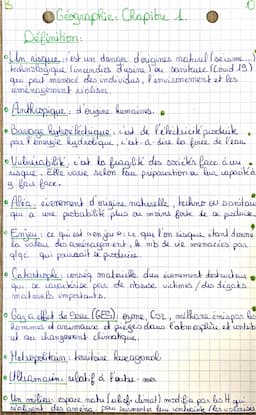 Géographie: Chapitre 1.
Définition:
• Un risque: c'est un danger d'origines naturel (seisme...)
technologique (incendies d'usine) ou sanitaire (Covid 19)
qui peut menacé des individus, l'environnement et les
aménagement réaliser.
• Anthropique: d'origine humaines.
• Barrage hydroélectrique: c'est de l'électricité produite
par l'énergie hydrolique, c'est-à-dire la force de l'eau.
• Vulnérabilité: c'est la fragilité des sociétés face à un
risque. Elle varie selon leur préparation et leur capacité à
y faire face.
• Aléa: évènement d'origine naturelle, techno ou sanitaire
qui a une probabilité plus ou moins forte de se produire.
• Enjeu: ce qui est en jeu: ce que l'on risque étant donné
la valeur des aménagement, le nb de vie menacées par
qlqc qui pourrait se produire.
• Catastrophe: conséq matérielle d'un évènement destructeur
qui se caractérise par de nbeuse victimes / des dégâts
matériels importants.
• Gaz à effet de serre (GES): CO2, méthane émis par les
hommes et animaux et piégés dans l'atmosphère et
au changement climatique.
• Métropolitain: territoire hexagonal
• Ultramarin: relatif à l'outre-mer
• Un milieu: espace natu (relief, climat) modifié par les H qui
réalisent des aménag. pour